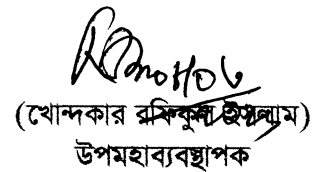 (খোন্দকার রফিকুল ইসলাম)
উপমহাব্যবস্থাপক